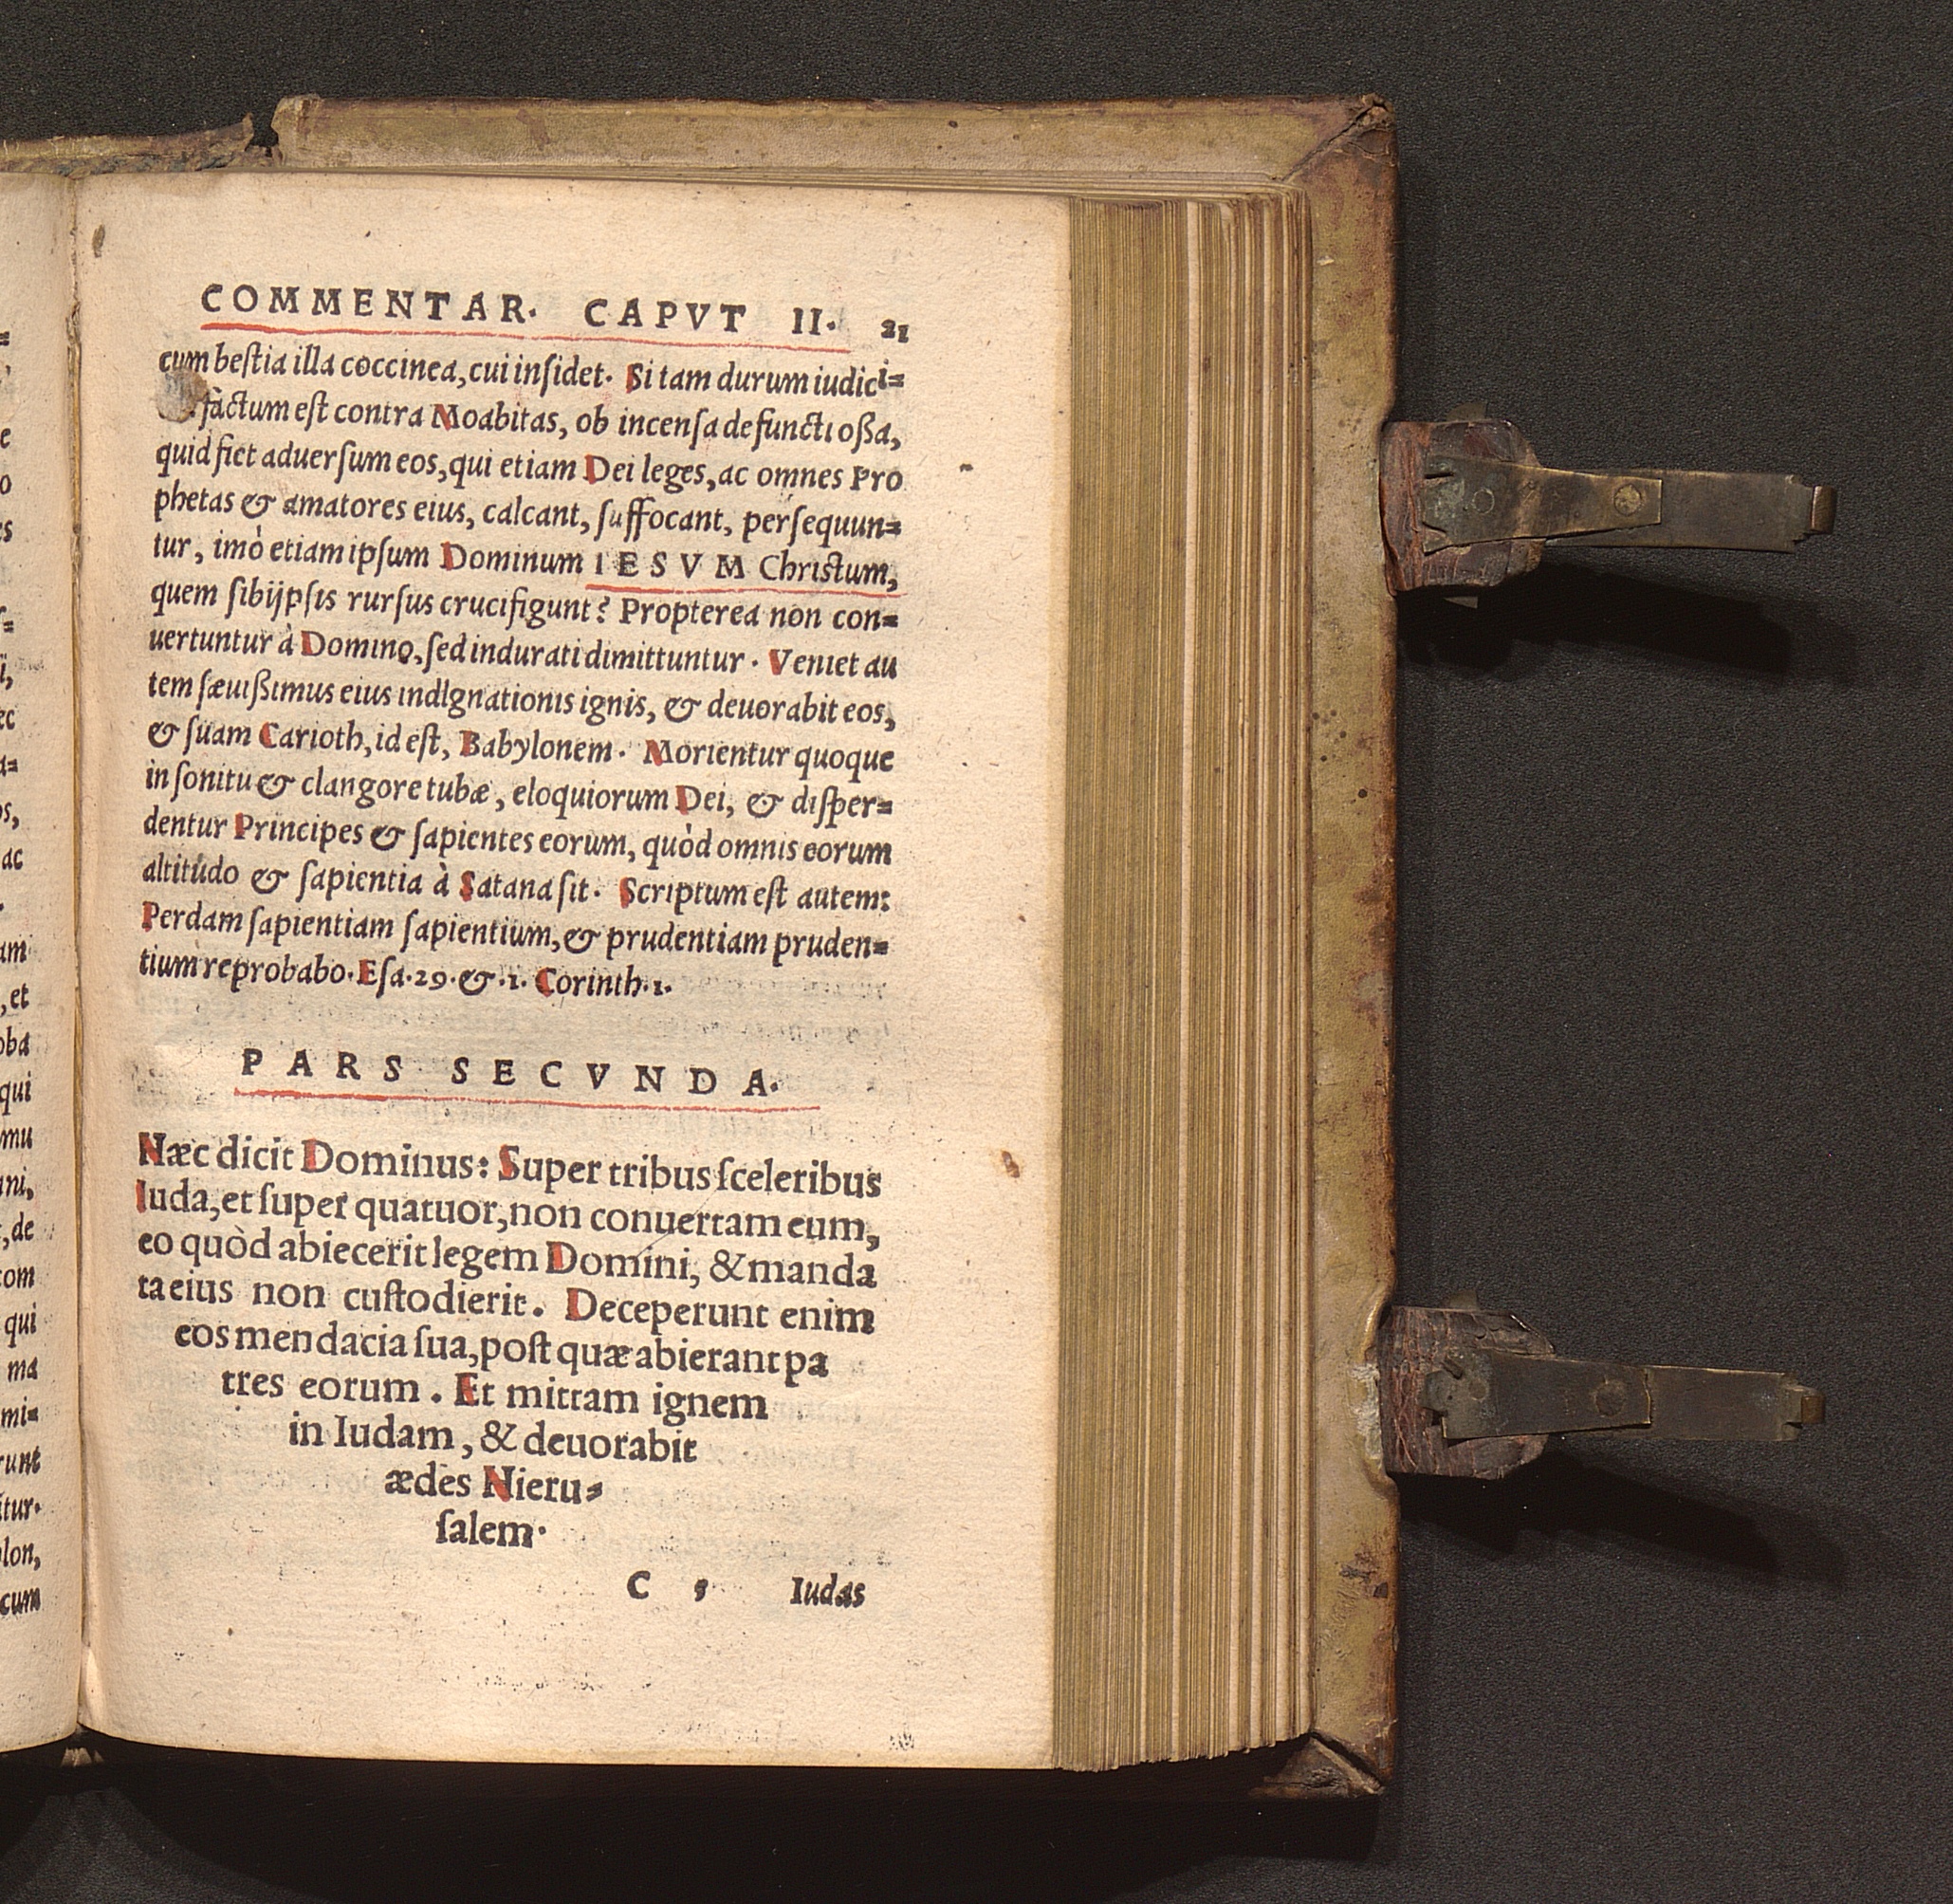 COMMENTAR. CAPVT II. 21
cum beſtia illa coccinea, cui inſidet. Si tam durum iudici=
factum eſt contra Moabitas, ob incenſa defuncti oßa,
quid fiet aduerſum eos, qui etiam Dei leges, ac omnes Pro
phetas & amatores eius, calcant, ſuffocant, perſequun=
tur, imò etiam ipſum Dominum IESVM Chriſtum,
quem ſibijpſis rurſus crucifigunt? Propterea non con=
uertuntur à Domino, ſed indurati dimittuntur. Veniet au
tem ſæuißimus eius indlgnationis ignis, & deuorabit eos,
& ſuam Carioth, id eſt, Babylonem. Morientur quoque
in ſonitu & clangore tubæ, eloquiorum Dei, & diſper=
dentur Principes & ſapientes eorum, quòd omnis eorum
altitudo & ſapientia à Satana ſit. Scriptum eſt autem:
Perdam ſapientiam ſapientium, & prudentiam pruden=
tium reprobabo. Eſa. 29. & .1. Corinth. 1.
PARS SECVNDA.
Hæc dicit Dominus: Super tribus ſceleribus
Iuda, et ſuper quatuor, non conuertam eum,
eo quòd abiecerit legem Domini, & manda
ta eius non cuſtodierit. Deceperunt enim
eos mendacia ſua, poſt quæ abierant pa
tres eorum. Et mittam ignem
in Iudam, & deuorabit
ædes Hieru=
ſalem.
C 5 Iudas
e
o
es
ec
os,
ac
am
, et
oba
qui
mu
ani,
, de
com
qui
ma
mi=
runt
itur.
lon,
cum